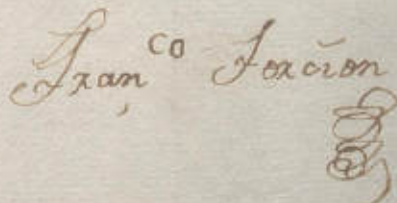 Fran,co Forcion